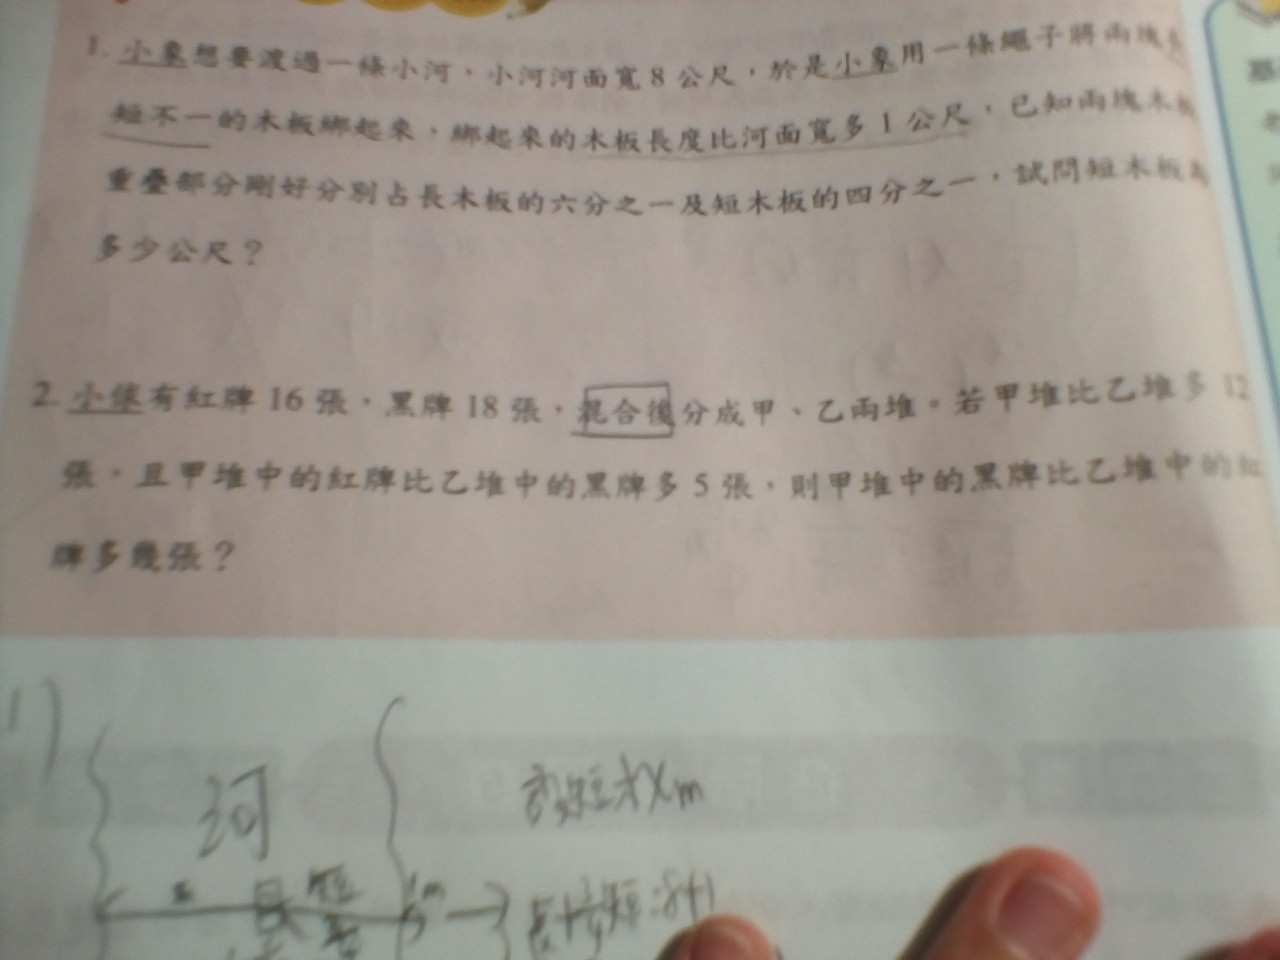 1. 小象想要渡過一條小河,小河河面寬8公尺,於是小象用一條繩子將兩塊長
短不一的木板綁起來,綁起來的木板長度比河面寬多1公尺,已知兩塊木板
重疊部分剛好分別占長木板的六分之一及短木板的四分之一,試問短木板為
多少公尺?
2. 小傑有紅牌16張,黑牌18張,混合後分成甲、乙兩堆。若甲堆比乙堆多12
張,且甲堆中的紅牌比乙堆中的黑牌多5張,則甲堆中的黑牌比乙堆中的紅
牌多幾張?
1)
河
設短木Xm
1m